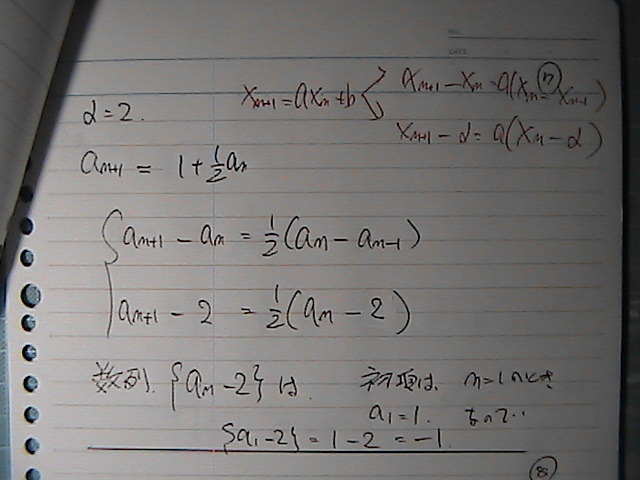 NO.
DATE
x_{n+1} = ax_n + b
x_{n+1} - x_n = a(x_n - x_{n-1})
⑰
x_{n+1} - α = a(x_n - α)
α = 2.
a_{n+1} = 1 + \frac{1}{2}a_n
a_{n+1} - a_n = \frac{1}{2}(a_n - a_{n-1})
a_{n+1} - 2 = \frac{1}{2}(a_n - 2)
数列 {a_n - 2} は. 初項は、 n=1のとき
a_1 = 1. なので‥
{a_1 - 2} = 1 - 2 = -1.